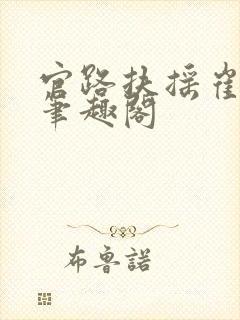 官路扶摇崔
笔趣阁
布鲁諾